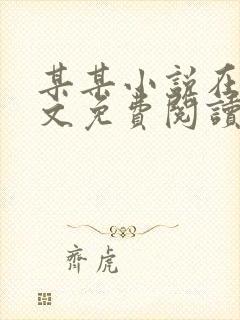 某某小说在
文免費閱讀
齊虎